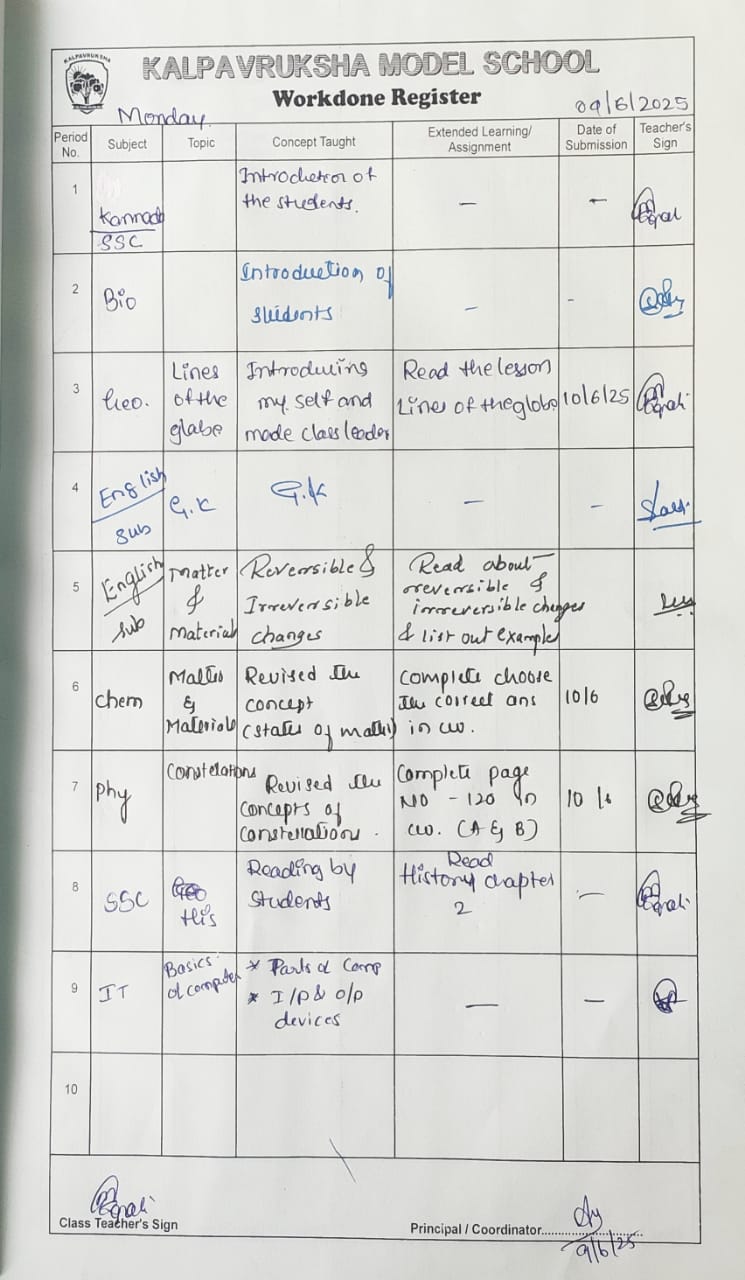 KALPAVRUKSHA
KALPAVRUKSHA MODEL SCHOOL
Workdone Register
Monday
09/6/2025
Period No. Subject Topic Concept Taught Extended Learning/ Assignment Date of Submission Teacher's Sign
1
Kannada
SSC
Introduction of
the students.
—
—
2
Bio
Introduction of
students
—
-
3
Geo.
Lines
of the
globe
Introducing
my self and
made class leader
Read the lesson
Lines of the globe
10/6/25
4
English
Sub
G.K
G.K
—
-
5
English
Sub
Matter
&
Material
Reversible &
Irreversible
changes
Read about
reversible &
irrreversible changes
& list out example
6
chem
Matter
&
Materials
Revised the
concept
(states of matter)
complete choose
the correct ans
in cw.
10/6
7
Phy
Constelations
Revised the
concepts of
constellations.
Complete page
NO - 120 in
cw. (A & B)
10/6
8
SSC
His
Reading by
students
Read
History chapter
2
—
9
IT
Basics
of computer
* Parts of Comp
* I/P & O/P
devices
—
—
10
Class Teacher's Sign
Principal / Coordinator
9/6/25